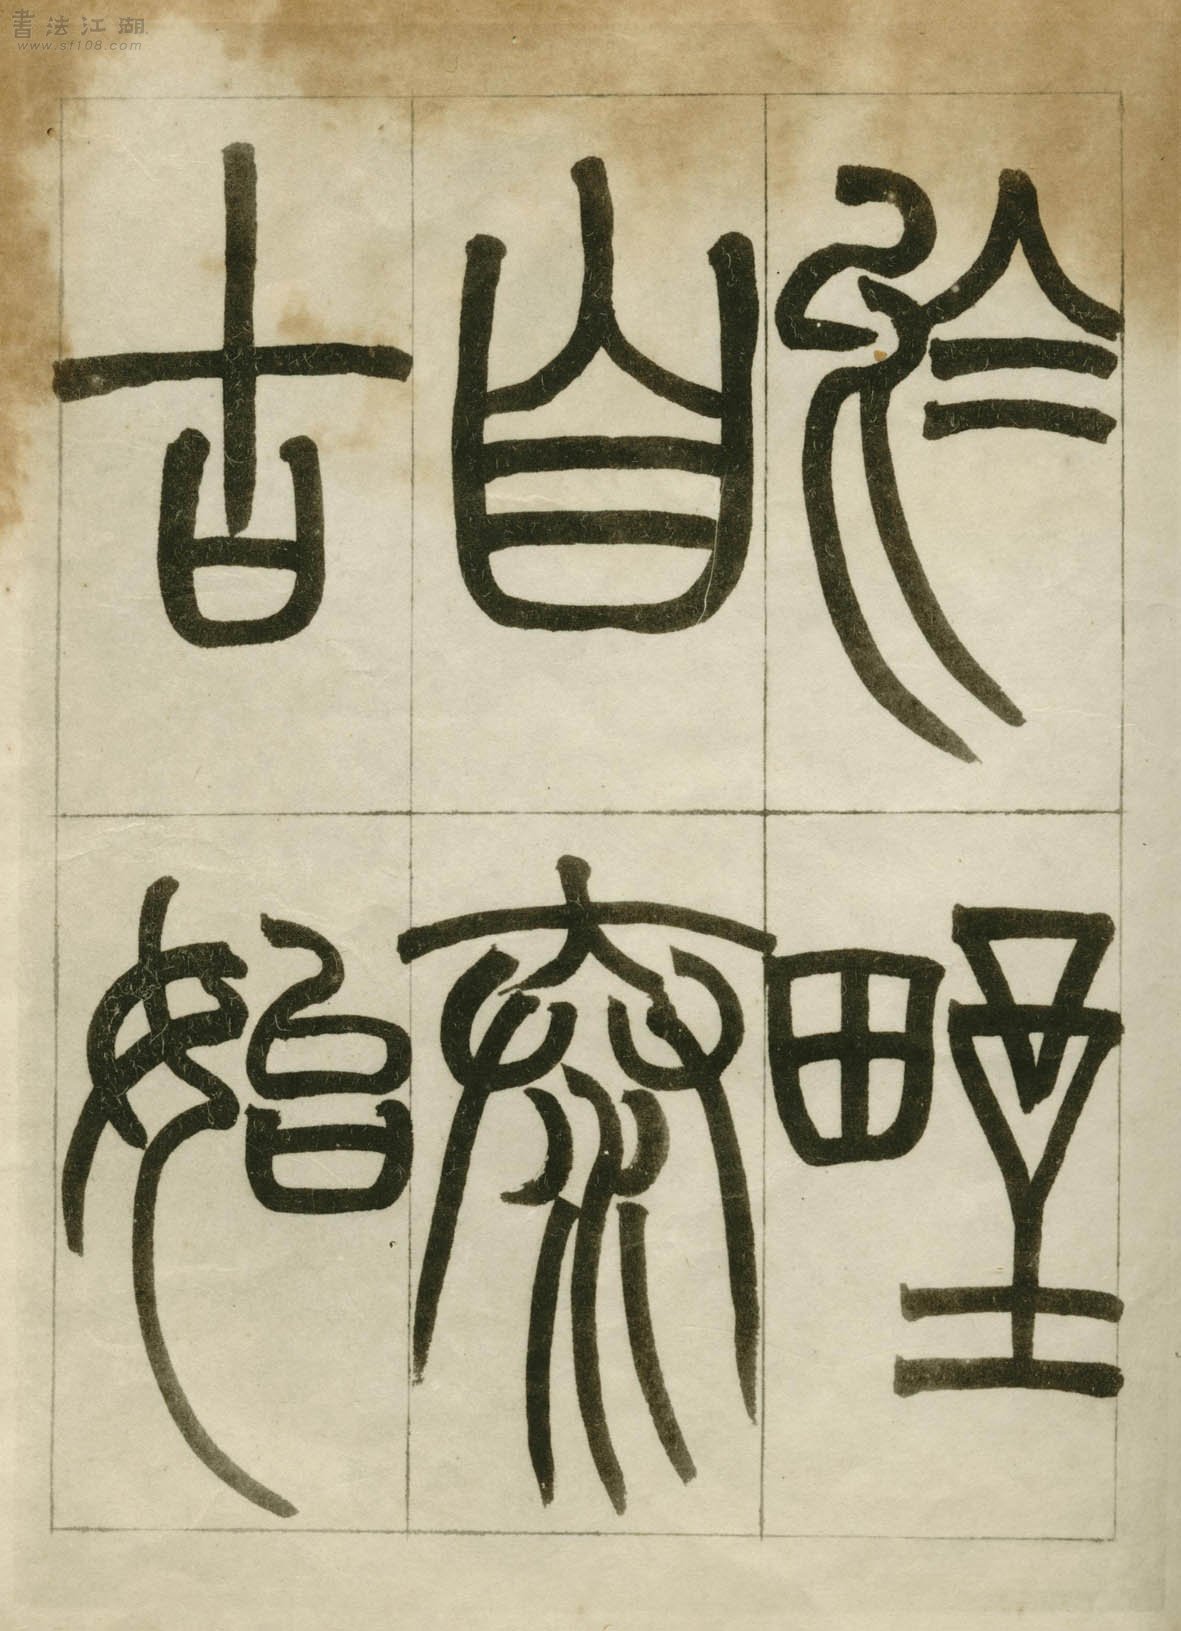 書法江湖
www.sf108.com
於野
自泰
古始